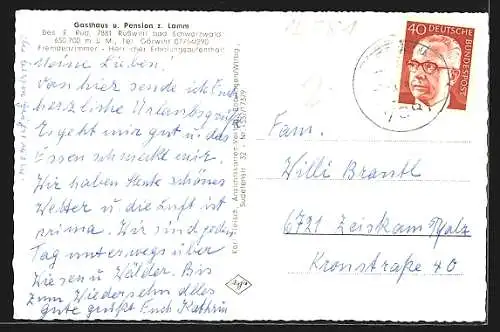 Gasthaus u. Pension z. Lamm
Bes. E. Rud, 7881 Rüßwihl bad Schwarzwald
650-700 m ü. M., Tel. Görwihl 07754/290
Fremdenzimmer - Herrlicher Erholungsaufenthalt
Meine Lieben.
Von hier sende ich Euch
herzliche Urlaubsgrüße
Es geht mir gut u. das
Essen schmeckt mir.
Wir haben heute schönes
Wetter u. die Luft ist
prima. Wir sind jeden
Tag unterwegs über
Wiesen u. Wälder. Bis
zum Wiedersehn alles
gute grüßt Euch Kathrin
Sudetenstr. 32
40
DEUTSCHE
BUNDESPOST
Fam.
Willi Brantl
6721 Zeiskam Pfalz
Kronstraße 40